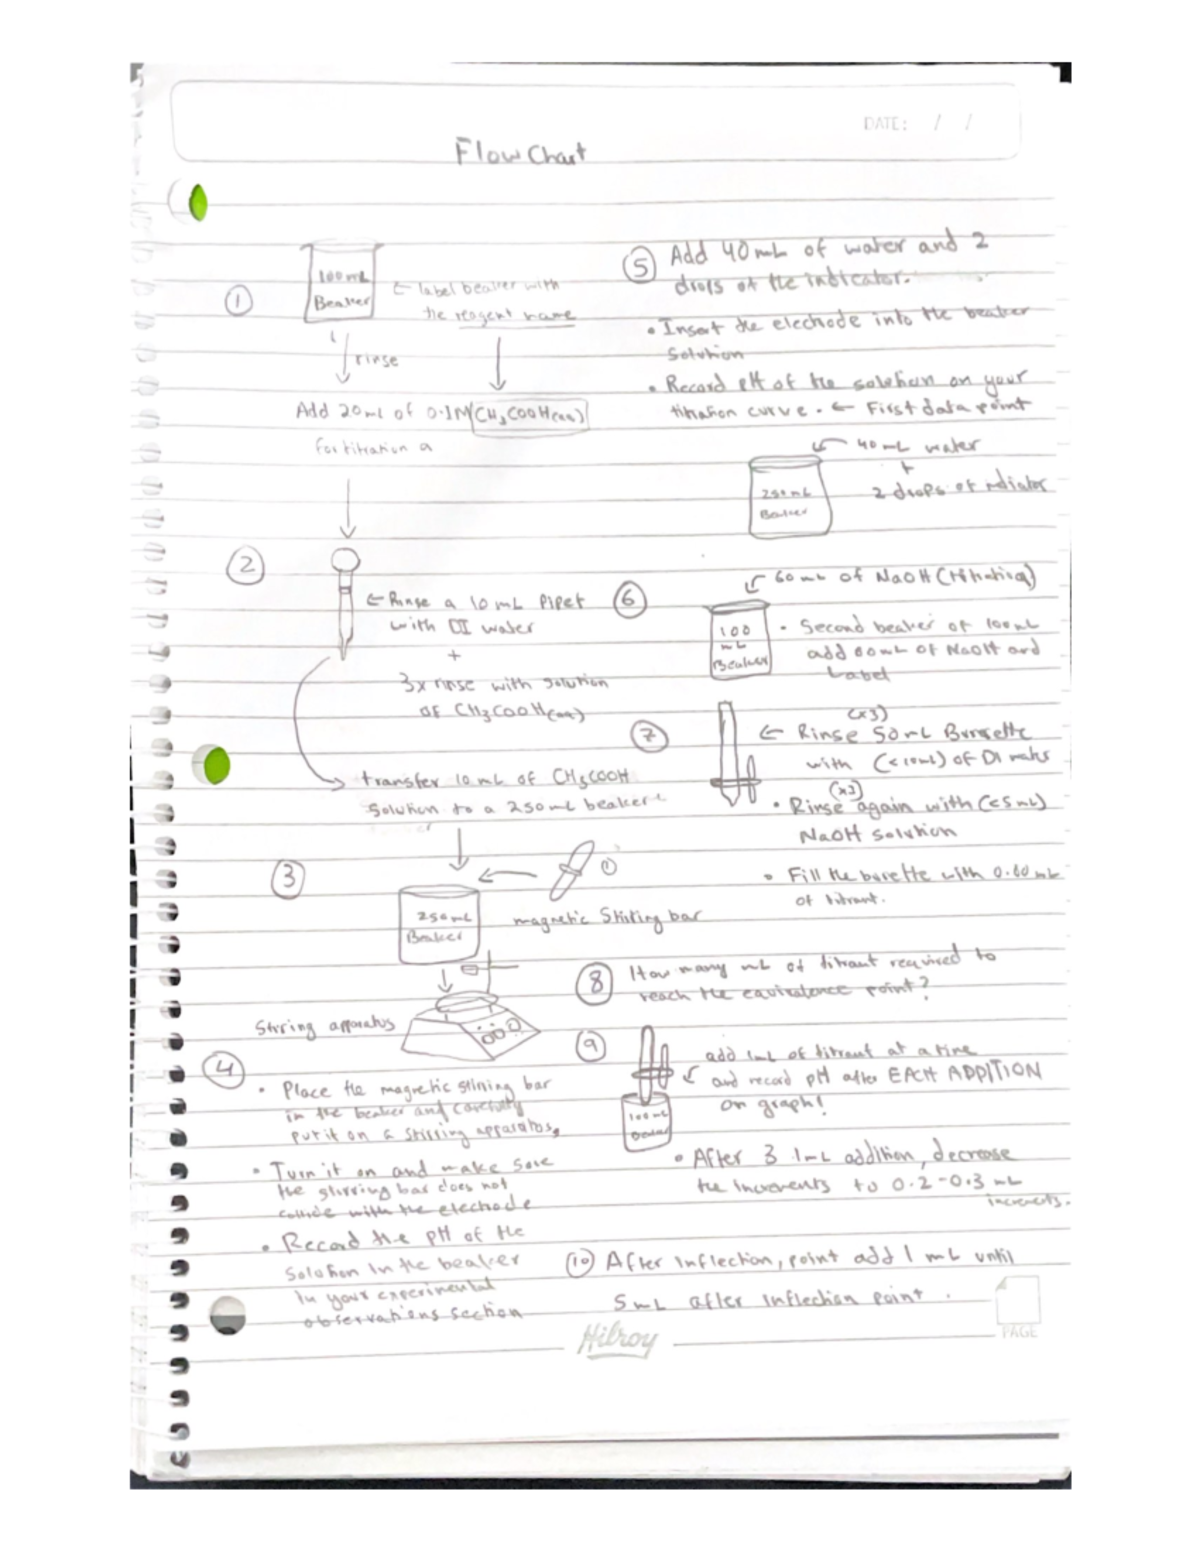 DATE: / /
Flow Chart
①
100mL
Beaker
← label beaker with
the reagent name
rinse
Add 20mL of 0.1M CH3COOH(aq)
for titration a
②
← Rinse a 10 mL Pipet
with DI water
+
3x rinse with solution
of CH3COOH(aq)
transfer 10 mL of CH3COOH
Solution to a 250 mL beaker
③
250mL
Beaker
①
magnetic Stirring bar
Stirring apparatus
④
• Place the magnetic stirring bar
in the beaker and carefully
put it on a stirring apparatus.
• Turn it on and make sure
the stirring bar does not
collide with the electrode
• Record the pH of the
Solution in the beaker
in your experimental
observations section
⑤ Add 40mL of water and 2
drops of the indicator.
• Insert the electrode into the beaker
Solution
• Record pH of the solution on your
titration curve. ← First data point
40mL water
+
2 drops of
250mL
Beaker
⑥
60mL of NaOH (titration a)
100
mL
Beaker
• Second beaker of 100mL
add 60mL of NaOH and
Label
⑦
(x3)
← Rinse 50mL Burette
with (<10mL) of DI water
(x3)
• Rinse again with (<5mL)
NaOH solution
• Fill the burette with 0.00mL
of titrant.
⑧ How many mL of titrant required to
reach the equivalence point?
⑨
100mL
Beaker
add 1mL of titrant at a time
and record pH after EACH ADDITION
on graph!
• After 3 1mL addition, decrease
the increments to 0.2-0.3 mL
increments.
⑩ After inflection, point add 1 mL until
5mL after inflection point.
Hilroy
PAGE